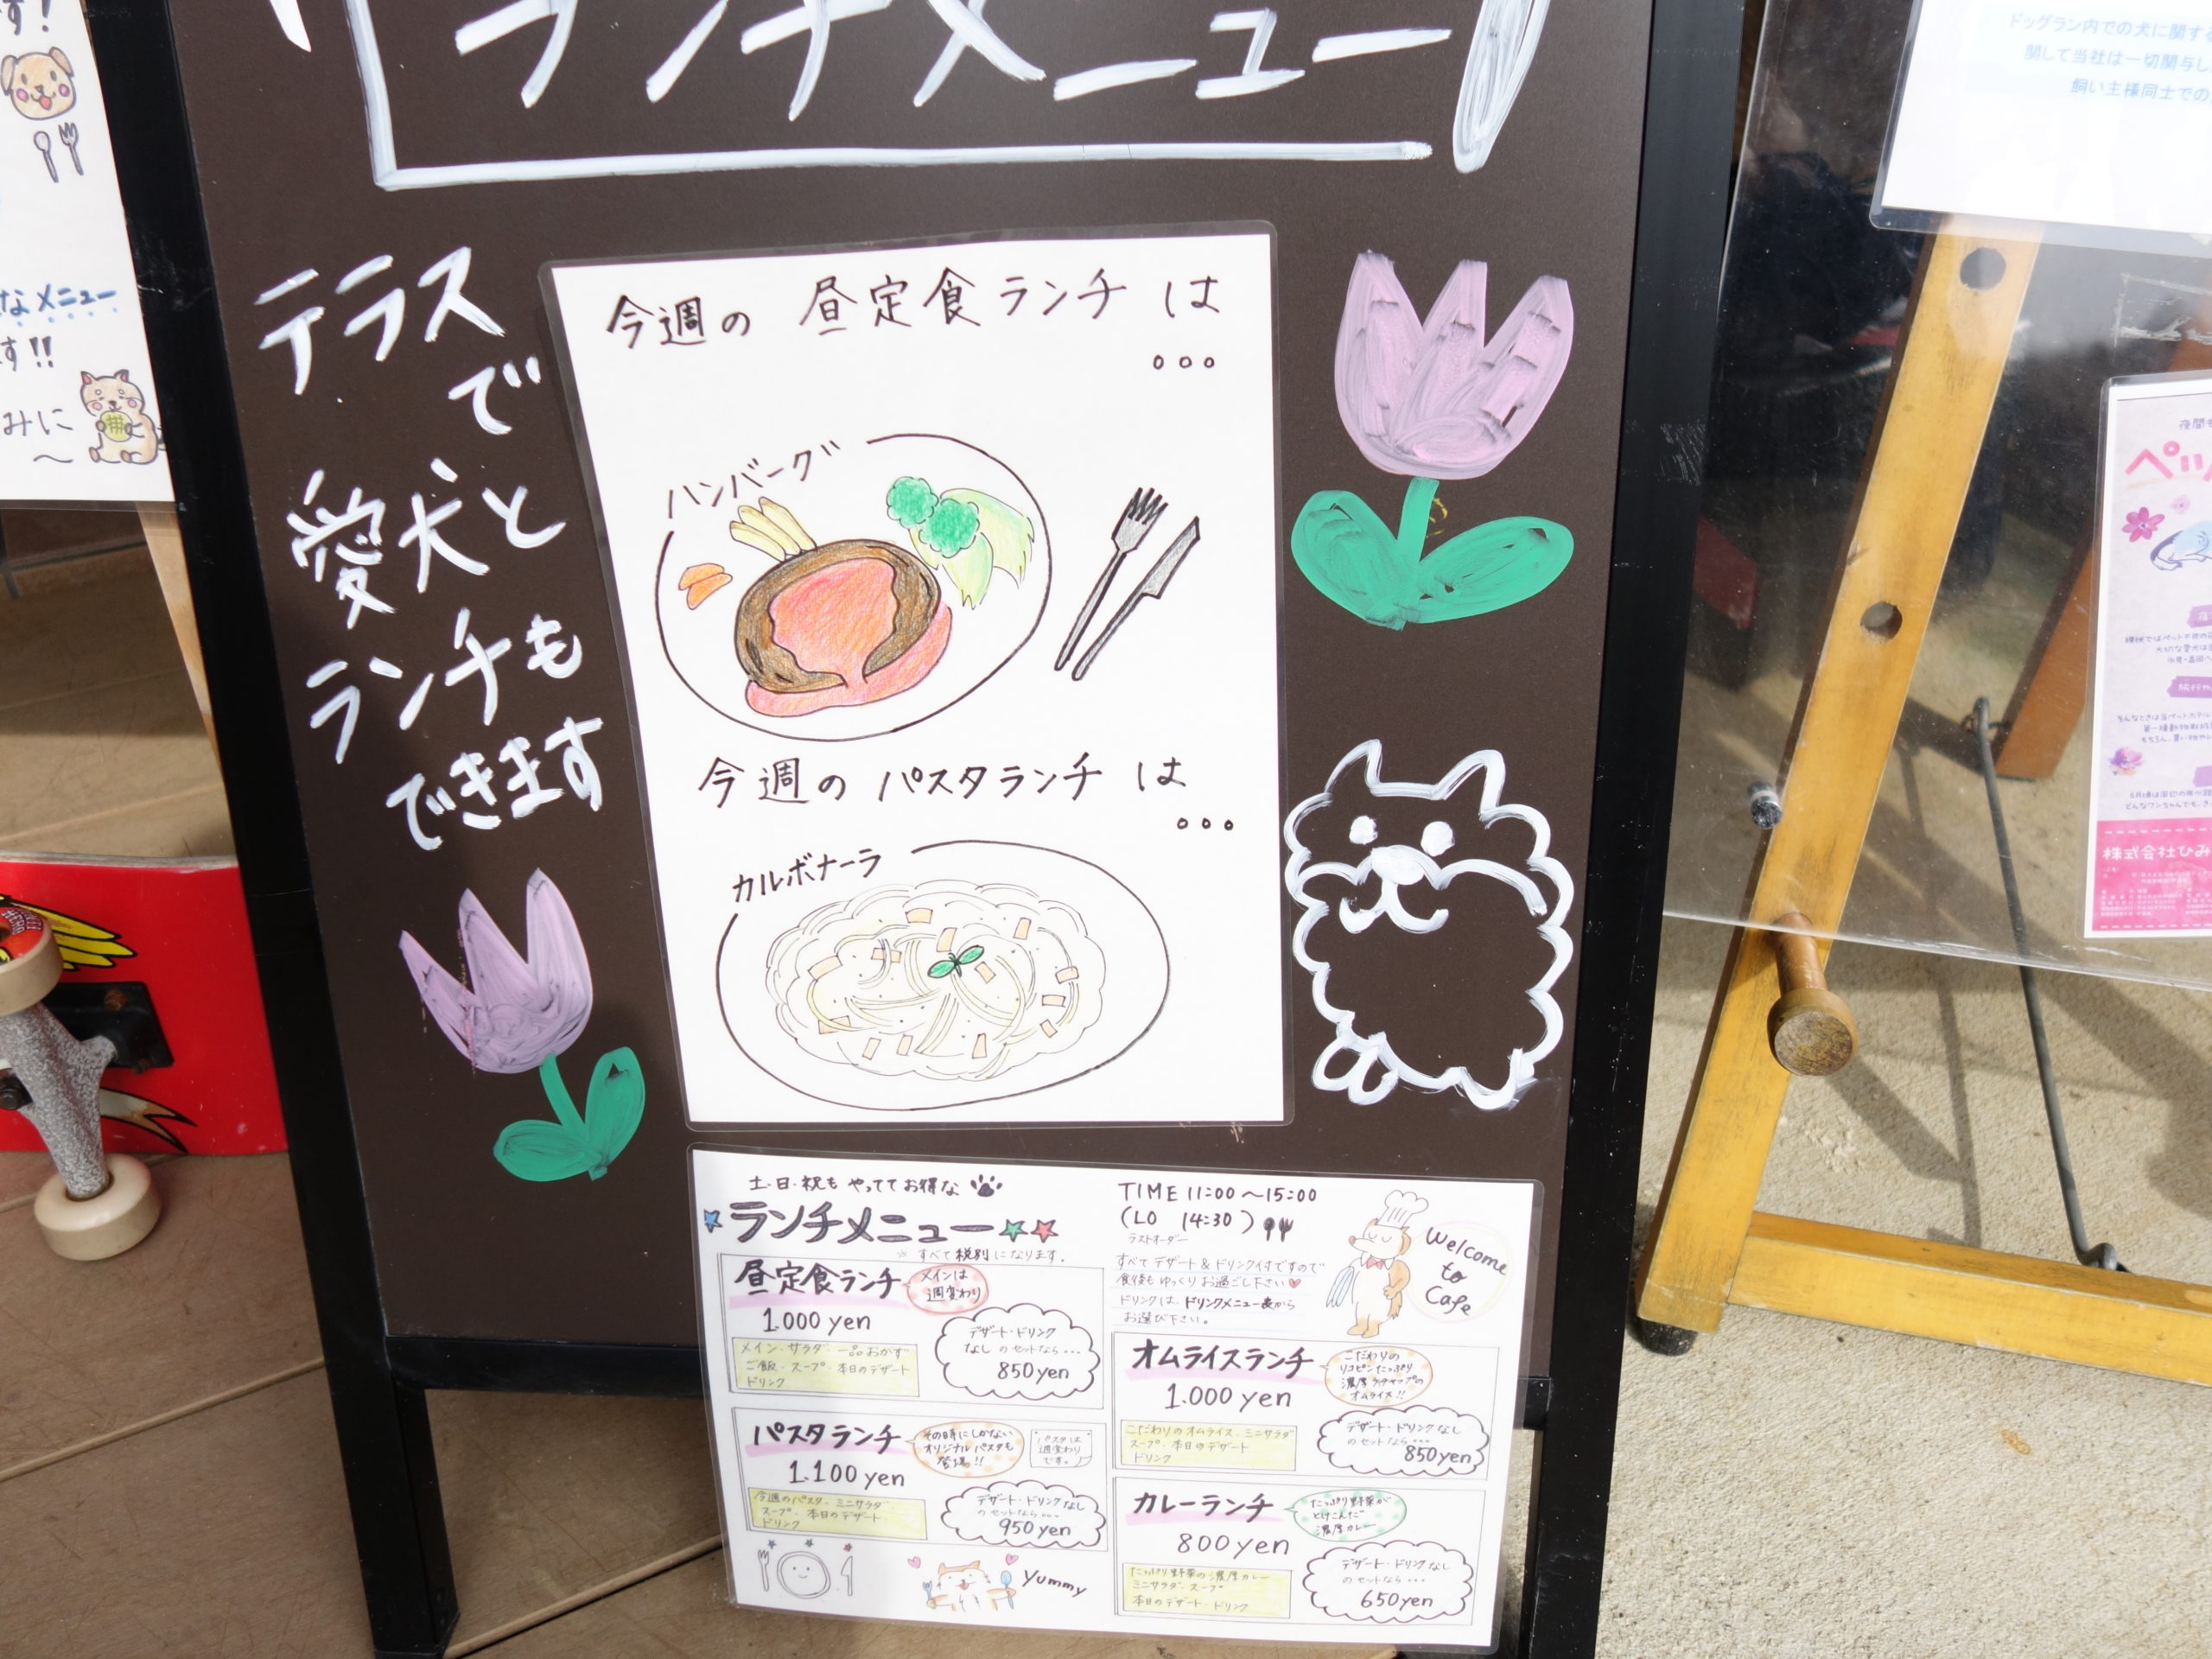 ランチメニュー
テラス
で
愛犬と
ランチも
できます
今週の 昼定食ランチ は
ハンバーグ
今週の パスタランチ は
カルボナーラ
土・日・祝も やってて お得な
ランチメニュー
※ すべて税別になります。
昼定食ランチ
メインは
週変わり
1.000 yen
メイン・サラダ・一品おかず
ご飯・スープ・本日のデザート
ドリンク
デザート・ドリンク
なし のセットなら…
850yen
パスタランチ
その時にしかない
オリジナルパスタも
登場!!
パスタは
週変わり
です。
1.100 yen
今週のパスタ・ミニサラダ
スープ・本日のデザート
ドリンク
デザート・ドリンクなし
のセットなら…
950yen
Yummy
TIME 11:00 〜15:00
(LO 14:30)
ラストオーダー
すべて デザート & ドリンク付ですので
食後も ゆっくり お過ごし下さい
ドリンクは、ドリンクメニュー表から
お選び下さい。
Welcome
to
Cafe
オムライスランチ
こだわりの
リコピンたっぷり
濃厚ケチャップの
オムライス!!
1.000 yen
こだわりのオムライス・ミニサラダ
スープ・本日のデザート
ドリンク
デザート・ドリンクなし
のセットなら…
850yen
カレーランチ
たっぷり野菜が
とけこんだ
濃厚カレー
800yen
たっぷり野菜の濃厚カレー
ミニサラダ・スープ
本日のデザート・ドリンク
デザート・ドリンクなし
のセットなら…
650yen
なメニュー
す!!
みに
ドッグラン内での犬に関する
関して当社は一切関与し
飼い主様同士での
夜間も
ペッ
株式会社ひみ